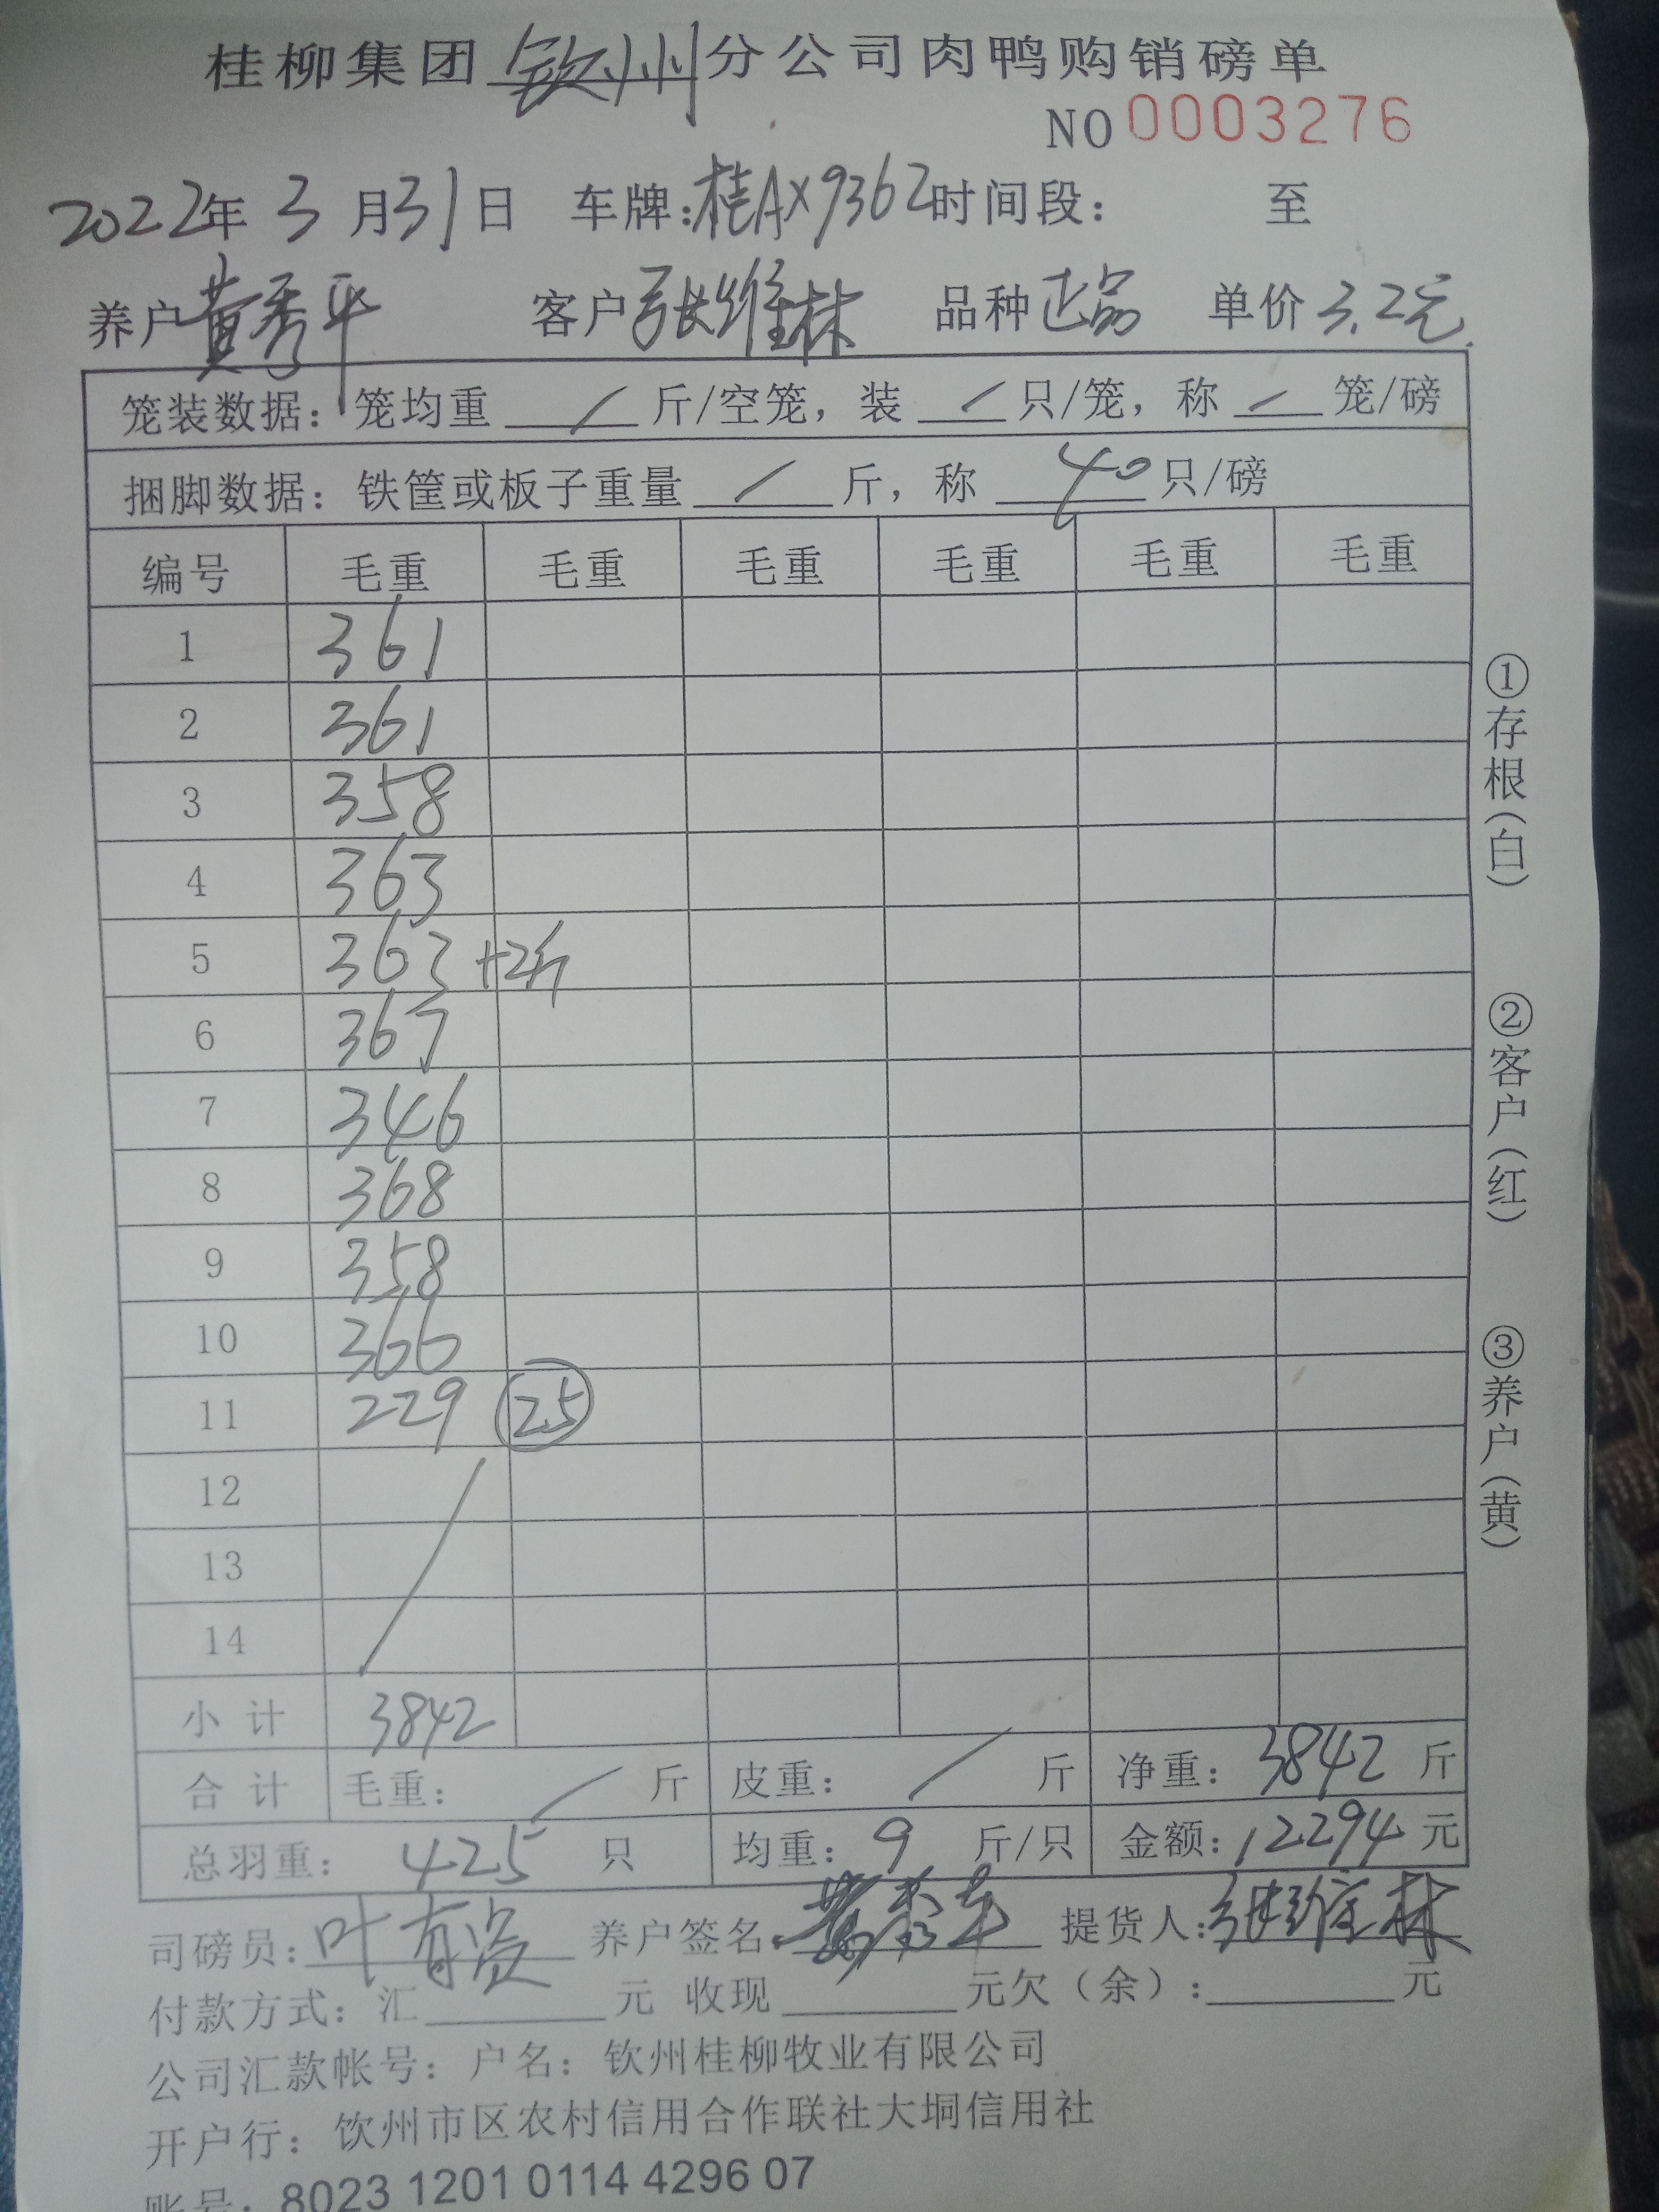 桂柳集团钦州分公司肉鸭购销磅单
NO 0003276
2022年 3 月 31 日 车牌:桂AX9362 时间段: 至
养户 黄秀平 客户 张维林 品种 正品 单价 3.2元
笼装数据: 笼均重 / 斤/空笼, 装 / 只/笼, 称 / 笼/磅
捆脚数据: 铁筐或板子重量 / 斤, 称 40 只/磅
编号 毛重 毛重 毛重 毛重 毛重 毛重
1 361
2 361
3 358
4 363
5 363 +2斤
6 367
7 346
8 368
9 358
10 366
11 229 25
12
13
14
小 计 3842
合 计 毛重: / 斤 皮重: / 斤 净重: 3842 斤
总羽重: 425 只 均重: 9 斤/只 金额: 12294 元
司磅员: 叶有资 养户签名: 黄秀平 提货人: 张维林
付款方式: 汇 元 收现 元欠（余）: 元
公司汇款帐号: 户名: 钦州桂柳牧业有限公司
开户行: 钦州市区农村信用合作联社大垌信用社
账号: 8023 1201 0114 4296 07
①存根(白)
②客户(红)
③养户(黄)